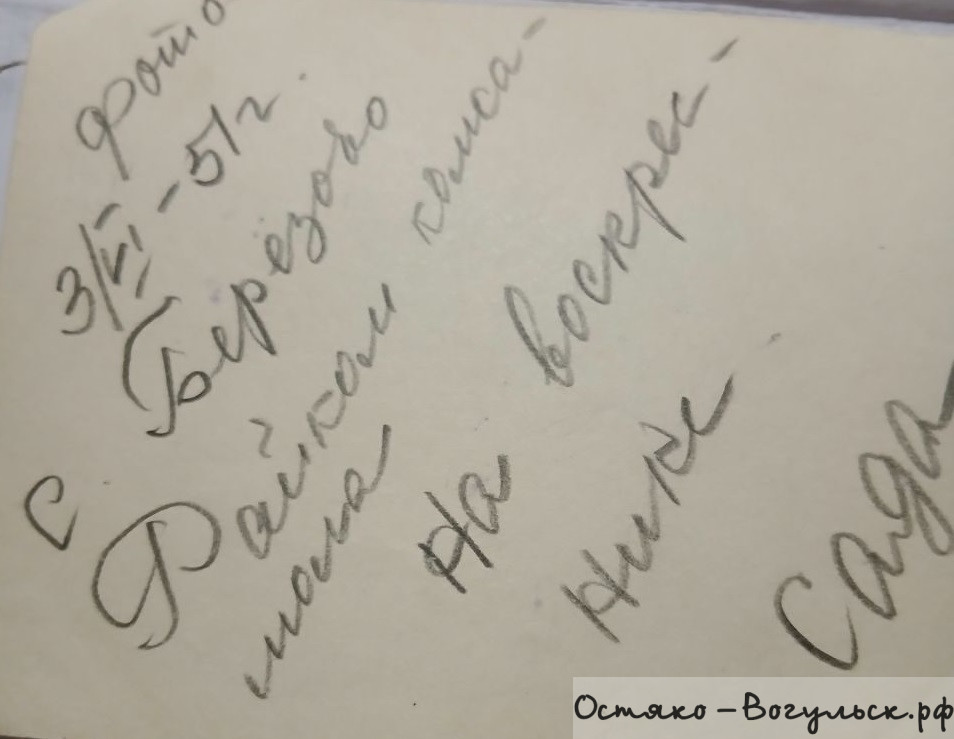 фото
3/VI-51г.
С. Березово
Райком комса-
мола
На воскрес-
нике
Сада
Остяко-Вогульск.рф